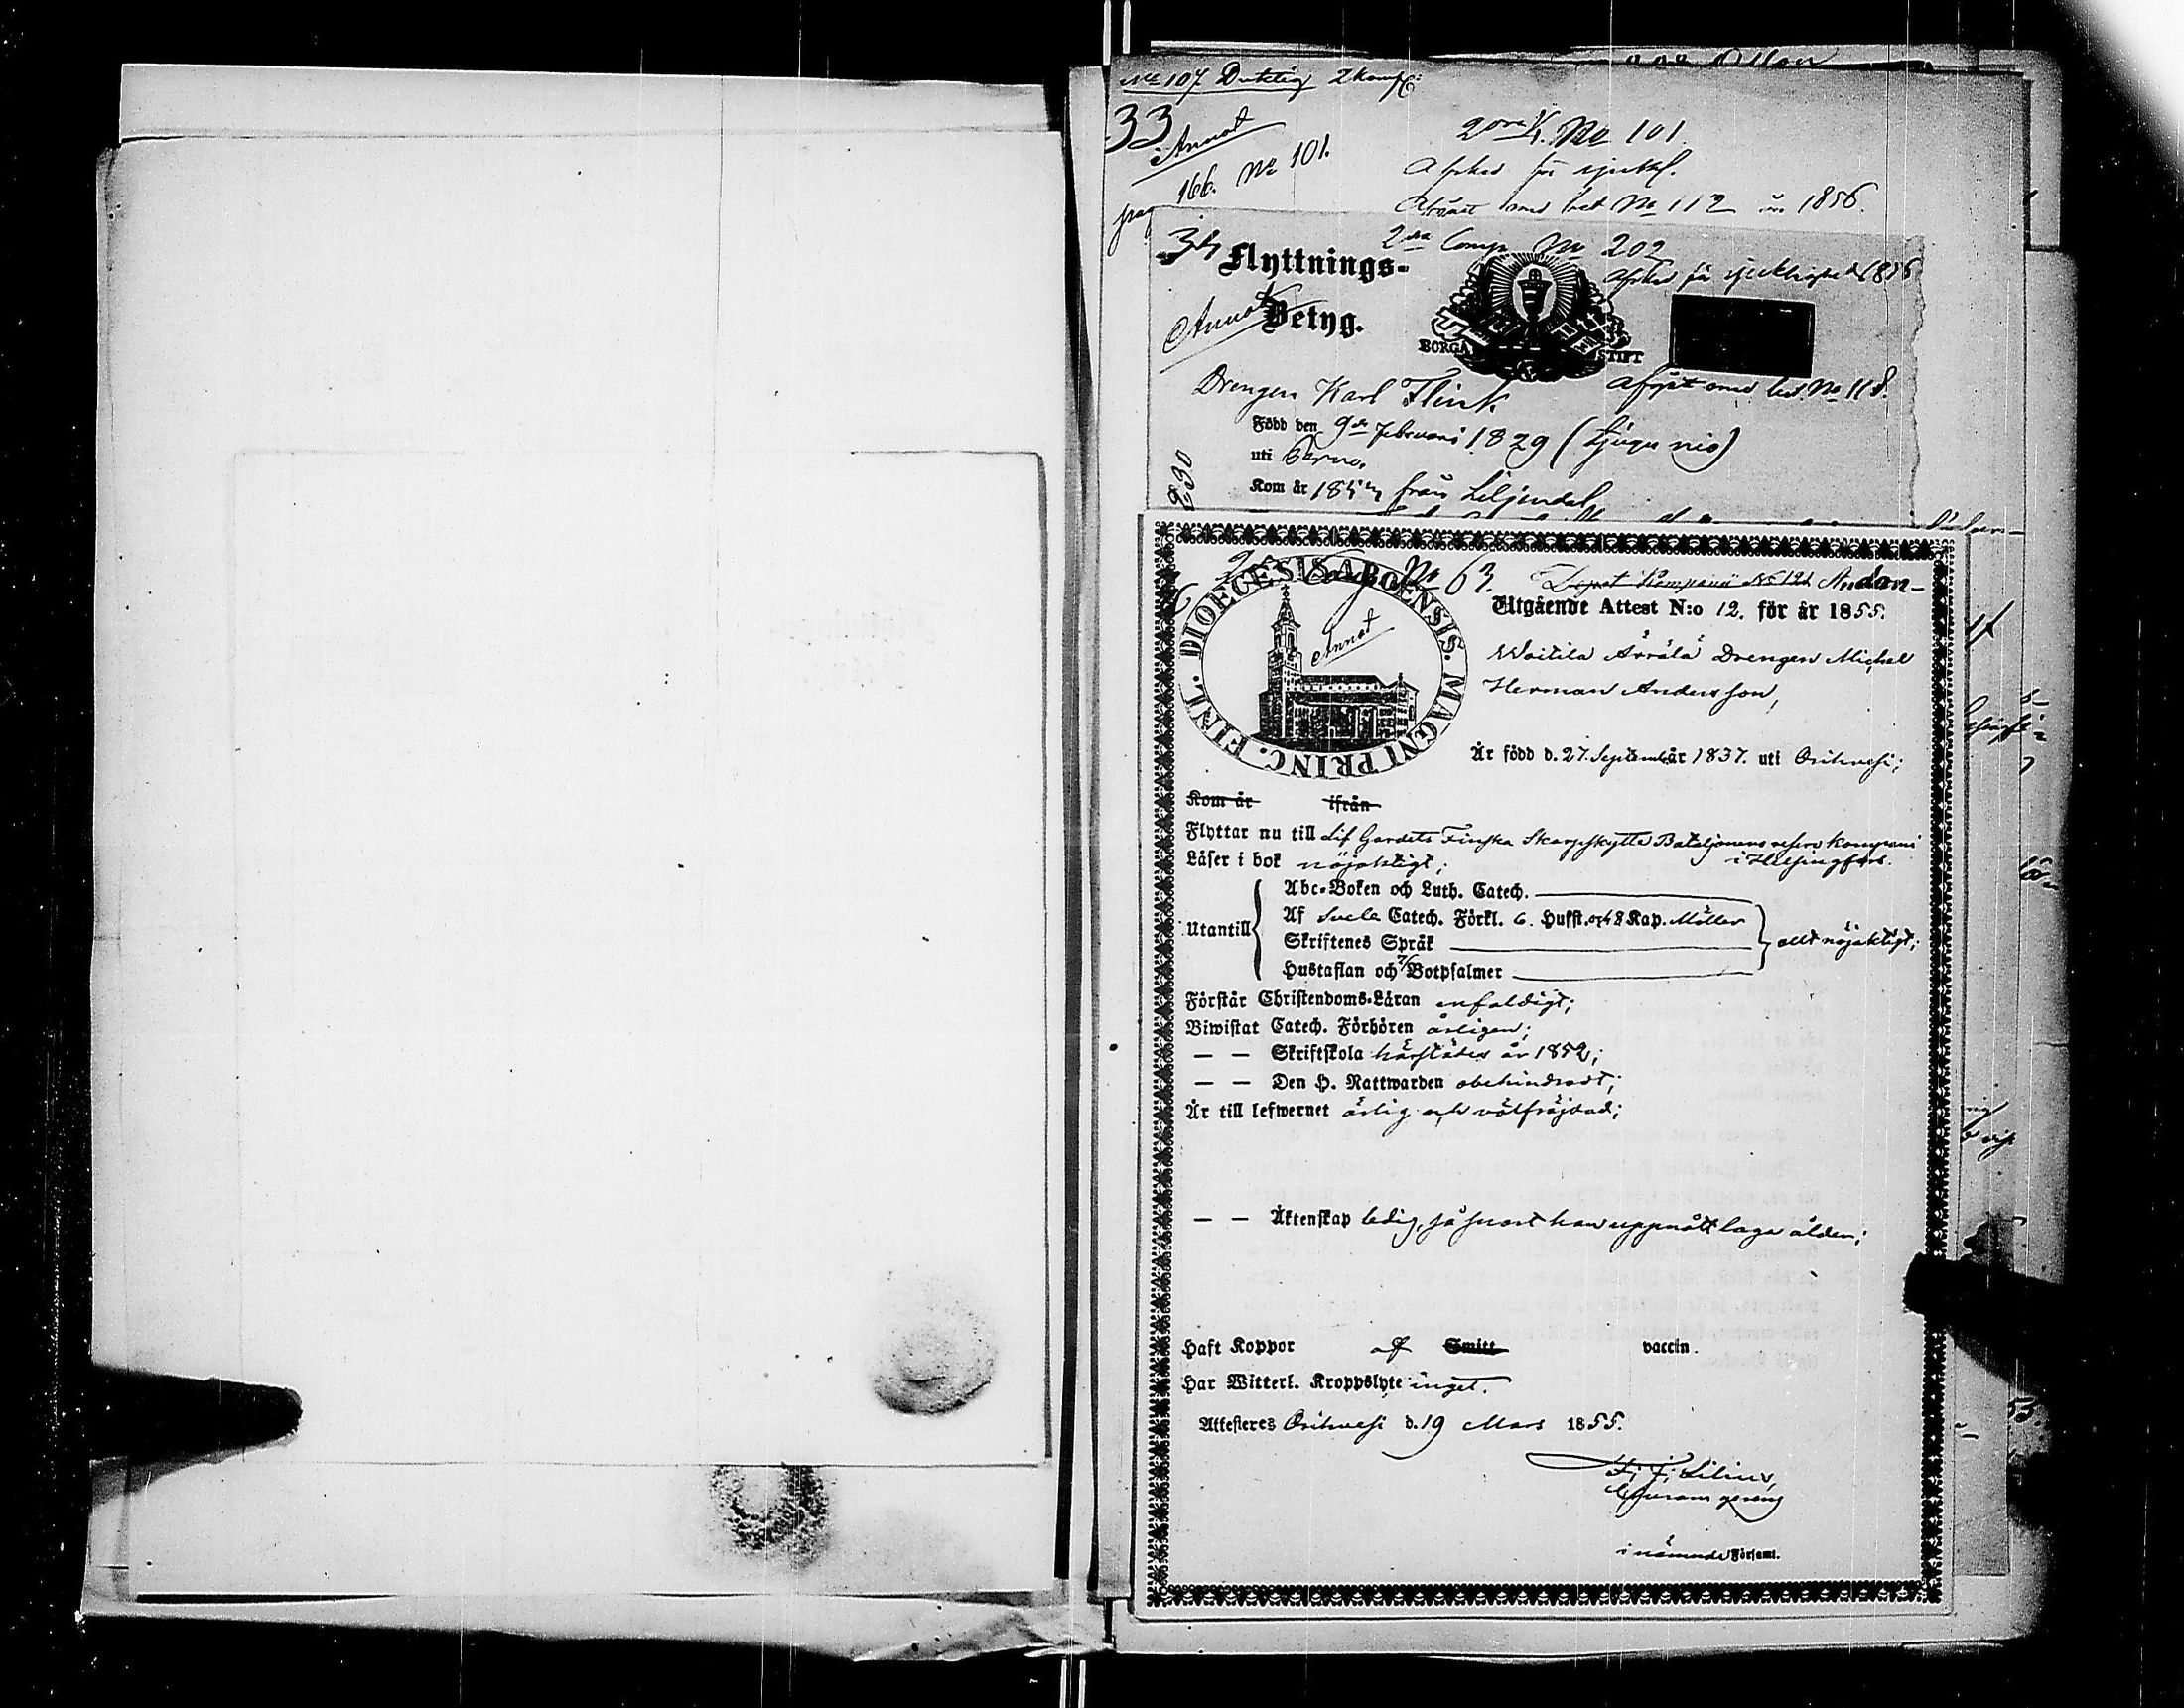 No 107. Duktig 2 komp:
33
Annot
pag 166. No 101.
No 101.
Afsked för sjukl.
Afgått med bet No 112 år 1856.
34
2dra Comp. No 202
Flyttnings-
Betyg.
Annot
BORGÅ STIFT
Afsked för sjuklighet 1856
Afgått med bet. No 118.
Drengen Karl Flink
Född den 9de Februari 1829 (tjugu nio)
uti Perno.
Kom år 185 från Liljendal
No 63.
Depot Kompani No 121 Andan-
DIOECESIS ABOENSIS. MAGNI PRINC. FINL.
Annot
Utgående Attest N:o 12. för år 1855.
Woitila Arrälä Drengen Michel
Herman Andersson,
Är född d. 27. September år 1837. uti Orihvesi;
Kom år ifrån
Flyttar nu till Lif Gardets Finska Skarpskytte Bataljonens reserv kompani
i Helsingfors.
Läser i bok nöjaktigt;
Utantill
Abc-Boken och Luth. Catech.
Af Svebe Catech. Förkl. 6. Hufst. och 8 Kap. Möller
Skriftenes Språk
Hustaflan och 7/ Botpsalmer
allt nöjaktigt;
Förstår Christendoms-Läran enfaldigt;
Biwistat Catech. Förhören årligen;
— — Skriftskola härstädes år 1852;
— — Den H. Nattwarden obehindradt;
Är till lefwernet ärlig och välfräjdad;
— — Äktenskap ledig, så snart han uppnått laga ålder;
Haft Koppor af Smitt vaccin.
Har Witterl. Kroppslyte inget.
Attesteras Orihvesi d. 19 Mars 1855.
Lilius,
i nämnde Församl.